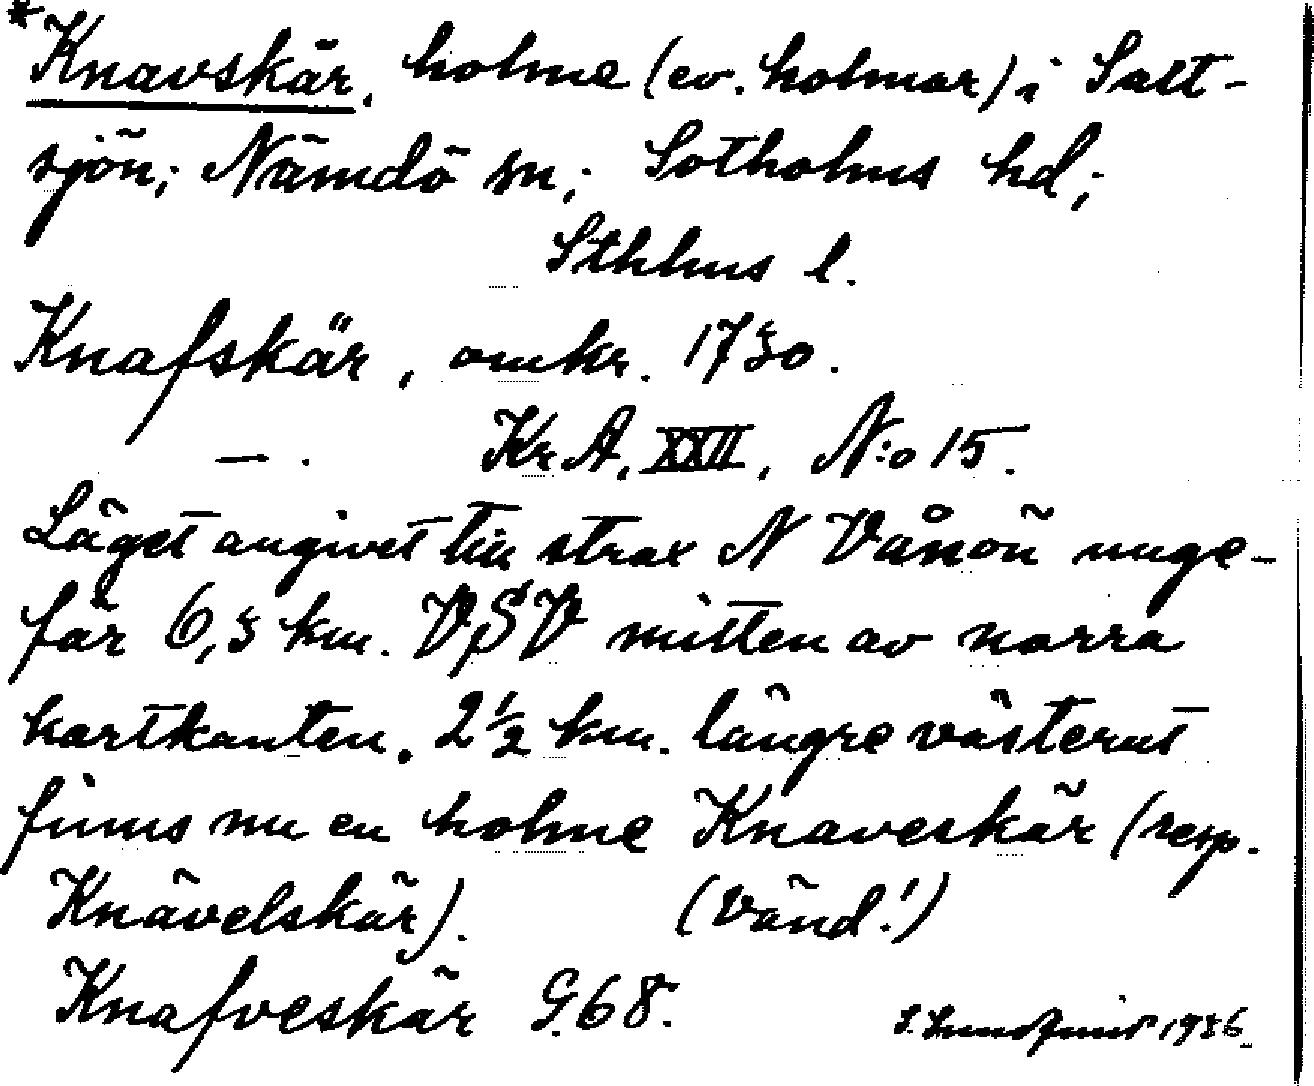 *Knavskär, holme (ev. holmar) i Salt-
sjön; Nämdö sn; Sotholms hd;
Sthlms l.
Knafskär, omkr. 1730.
— . Kr.A. XXII, N:o 15.
Läget angivet till strax N Vånön unge-
fär 6,5 km. VSV mitten av norra
kartkanten. 2½ km. längre västerut
finns nu en holme Knaveskär (resp.
Knävelskär). (Vänd!)
Knafveskär G. 68.